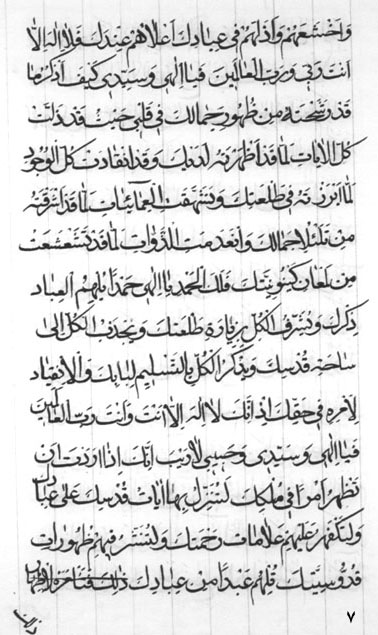 واخشعهم واذلهم في عبادك اعلاهم عندك فلا اله الا
انت ربي ورب العالمين فيا الهي وسيدي كيف اذكر ما
قد رشحتنه من ظهور جمالك في قلبي حيث قد ذلت
كل الايات لما قد اظهرته لديك وقد انقادت كل الوجود
لما ابرزته في طلعتك وتشهقت العمائيات لما قد اشرقته
من تلئلا جمالك وانعدمت الذوات لما قد تشعشعت
من لمعان كينونيتك فلك الحمد يا الهي حمدا يلهم العباد
ذكرك ويشرف الكل بزيارة طلعتك ويجذب الكل الى
ساحة قدسك ويذكر الكل بالتسليم لبابك والانقياد
لامره في حقك اذ انك لا اله الا انت وانت رب العالمين
فيا الهي وسيدي وحسبي لا ريب انك اذا اردت ان
تظهر امرا في ملكك لتنزل بها ايات قدسك على عبادك
ولتكفهر عليهم علامات رحمتك ولتستر فيهم ظهورات
قدوسيتك فلهم عبدا من عبادك ذلك
ذلك
٧